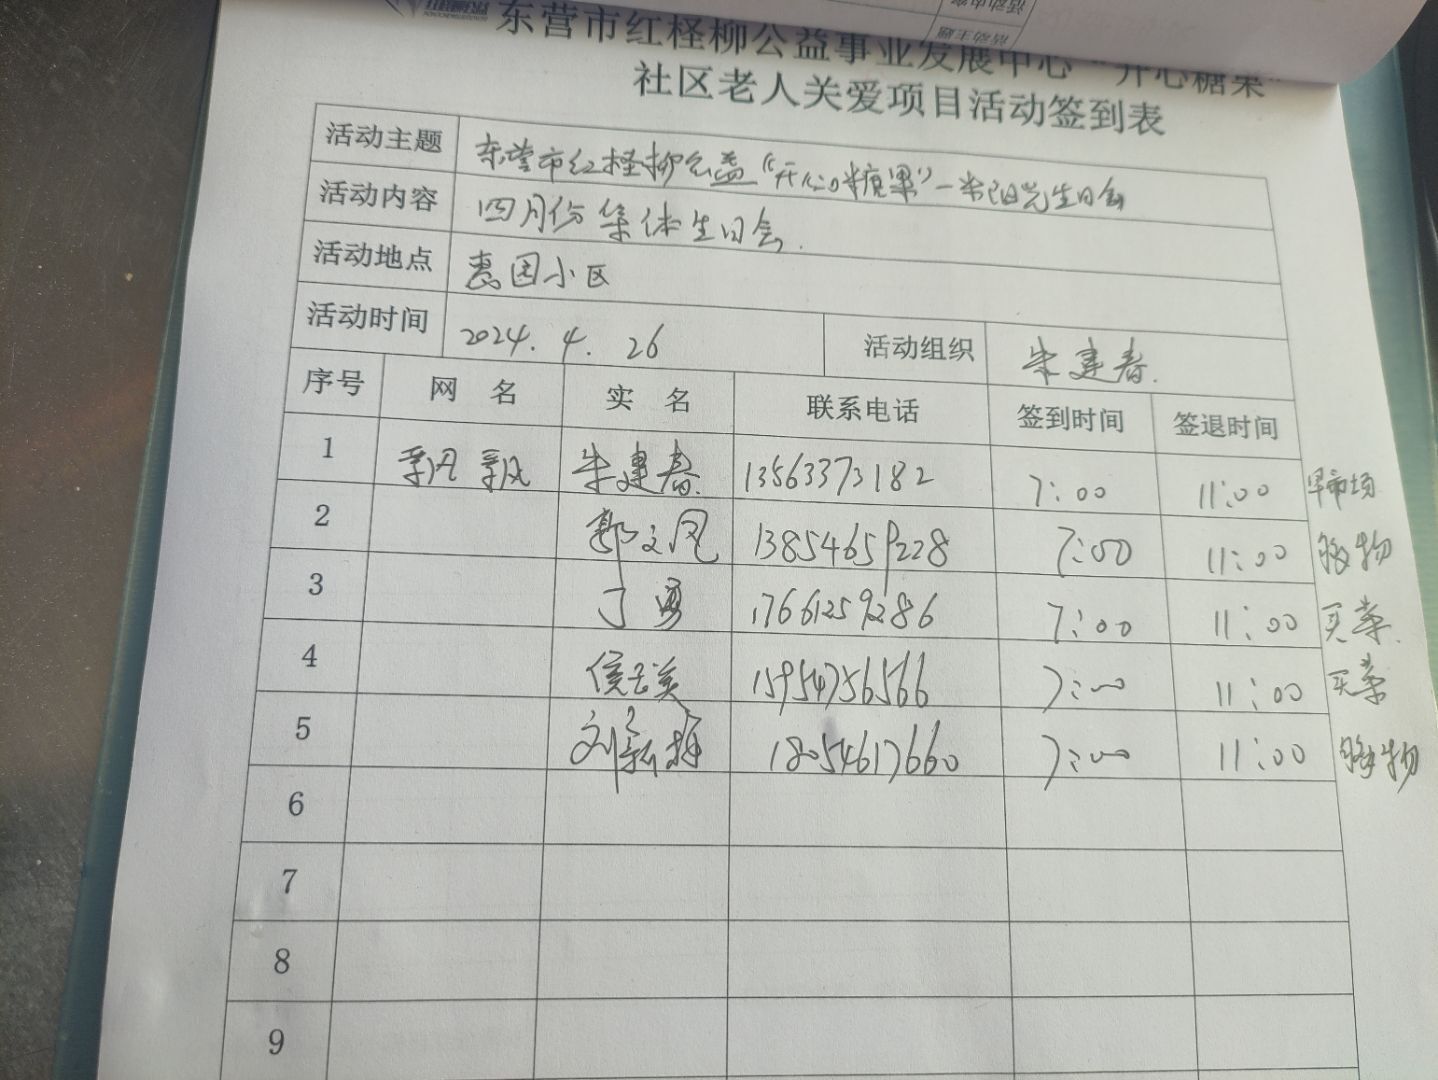 东营市红柽柳公益事业发展中心“开心糖果”
社区老人关爱项目活动签到表
活动主题 东营市红柽柳公益“开心糖果”一米阳光生日会
活动内容 四月份集体生日会.
活动地点 惠园小区
活动时间 2024.4.26 活动组织 朱建春.
序号 网 名 实 名 联系电话 签到时间 签退时间
1 朱建春. 13563373182 7:00 11:00 早市场
2 郭文凤 13854659228 7:00 11:00 购物
3 丁勇 17661259286 7:00 11:00 买菜.
4 侯玉美 15954756566 7:00 11:00 买菜
5 刘新梅 18054617660 7:00 11:00 购物
6
7
8
9